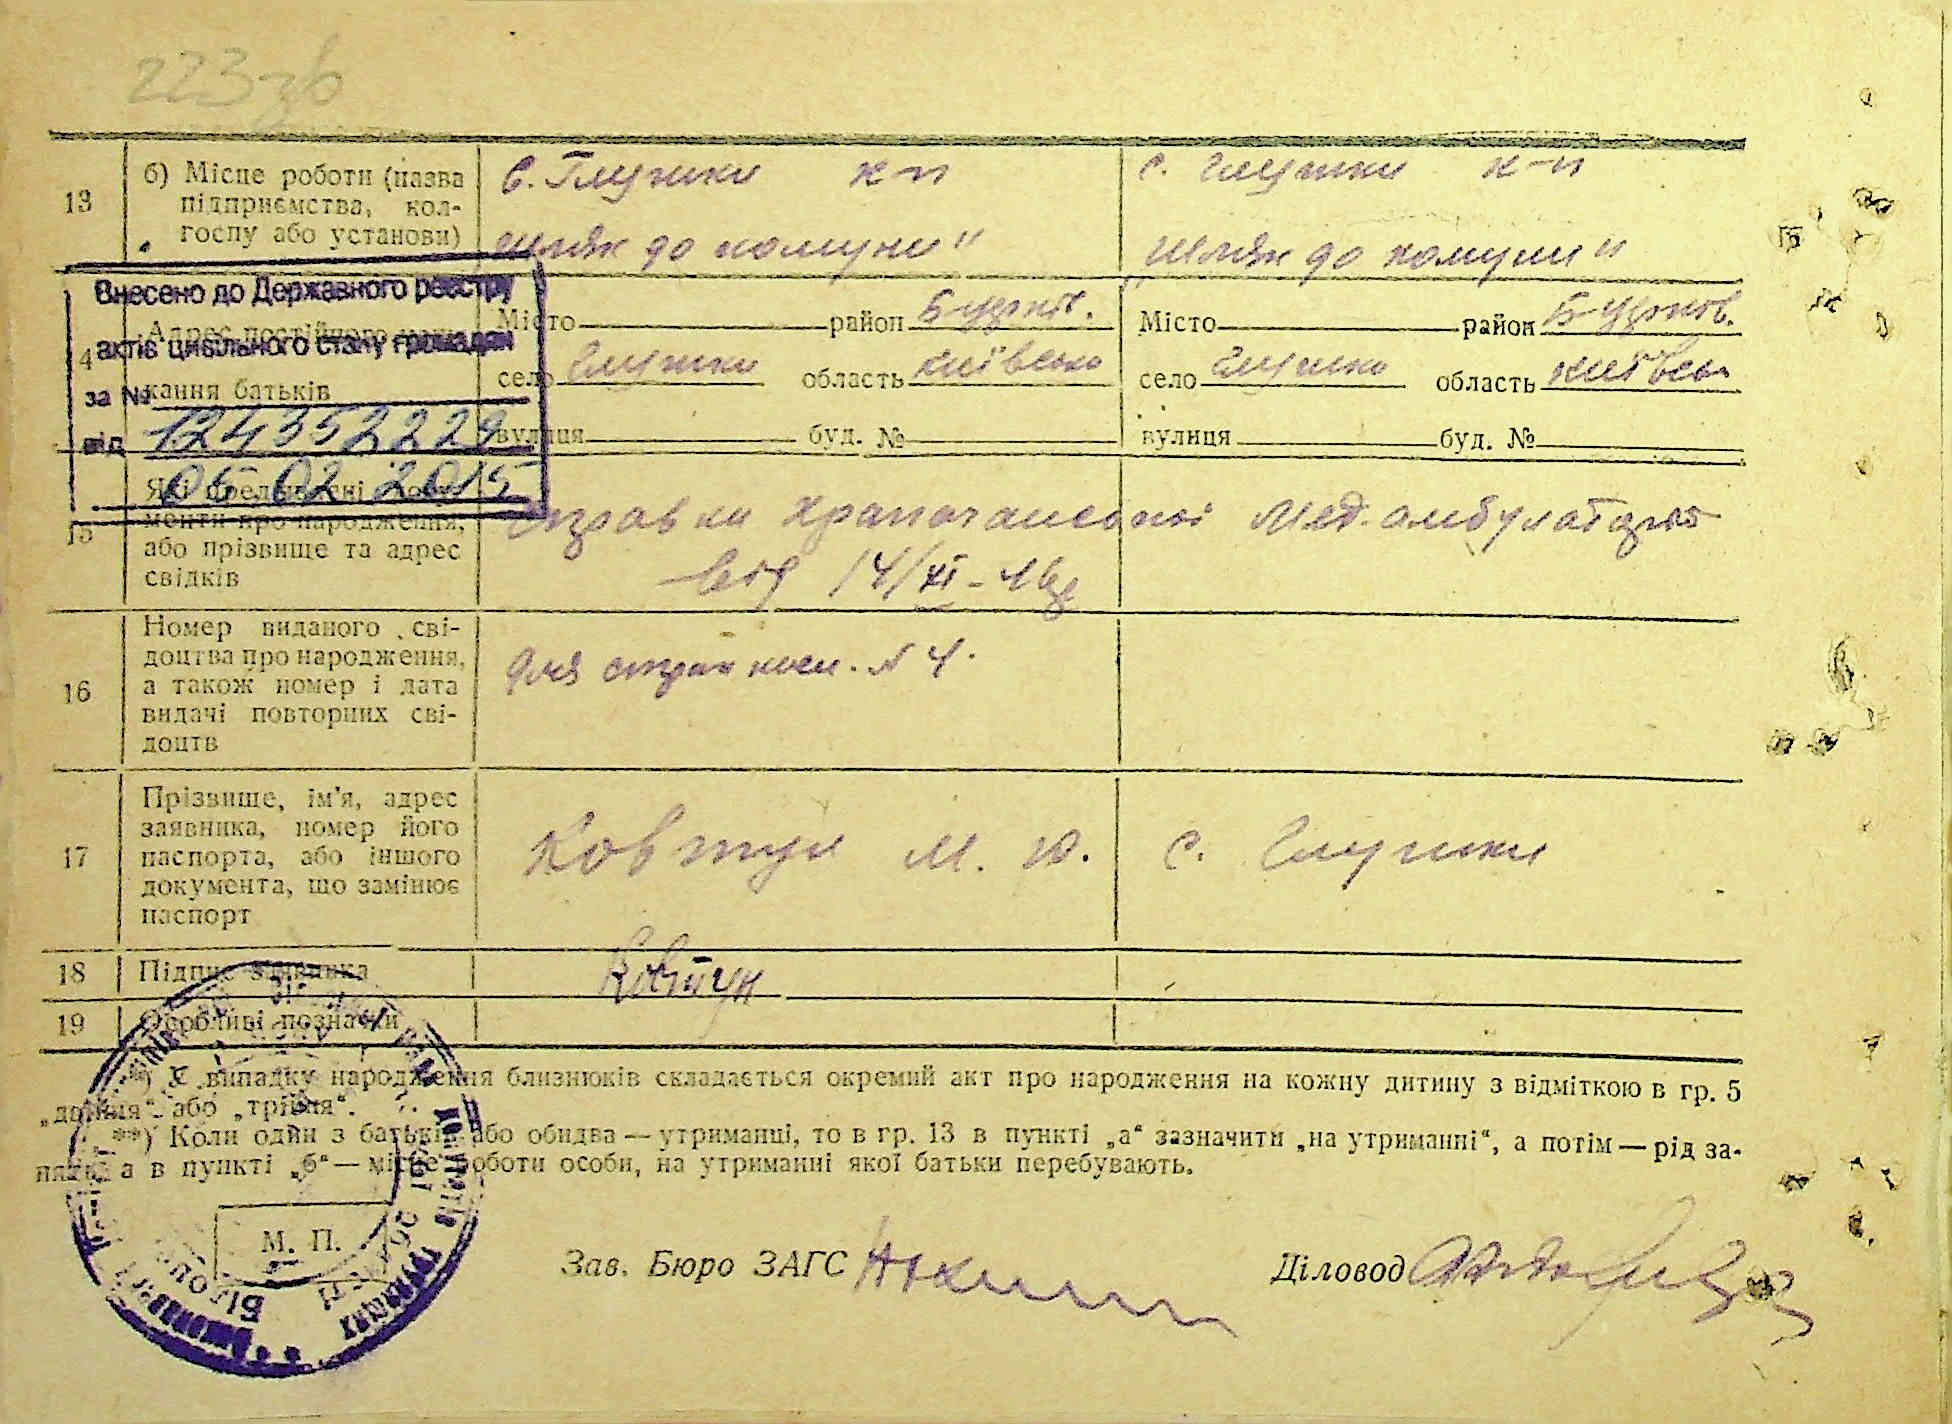 223зв
13
б) Місце роботи (назва
підприємства, кол-
госпу або установи)
с. Глушки к-п
шлях до комуни"
с. Глушки к-п
шлях до комуни"
Внесено до Державного реєстру
актів цивільного стану громадян
за №
124352229
від
05.02 2015
Адрес постійного
кання батьків
Місто район
село Глушки область київська
вулиця буд. №
Місто район
село Глушки область київськ
вулиця буд. №
15
Які пред'явлені доку-
менти про народження,
або прізвище та адрес
свідків
справка Мед. амбулаторії
від 14/XI-
16
Номер виданого сві-
доцтва про народження,
а також номер і дата
видачі повторних сві-
доцтв
для № 4.
17
Прізвище, ім'я, адрес
заявника, номер його
паспорта, або іншого
документа, що замінює
паспорт
Ковтун М. Ю. с. Глушки
18
Підпис заявника
Ковтун
19
Особливі позначки
*) У випадку народження близнюків складається окремий акт про народження на кожну дитину з відміткою в гр. 5
„двійня“ або „трійня“.
**) Коли один з батьків або обидва — утриманці, то в гр. 13 в пункті „а“ зазначити „на утриманні“, а потім — рід за-
няття а в пункті „б“ — місце роботи особи, на утриманні якої батьки перебувають.
М. П.
Зав. Бюро ЗАГС
Діловод